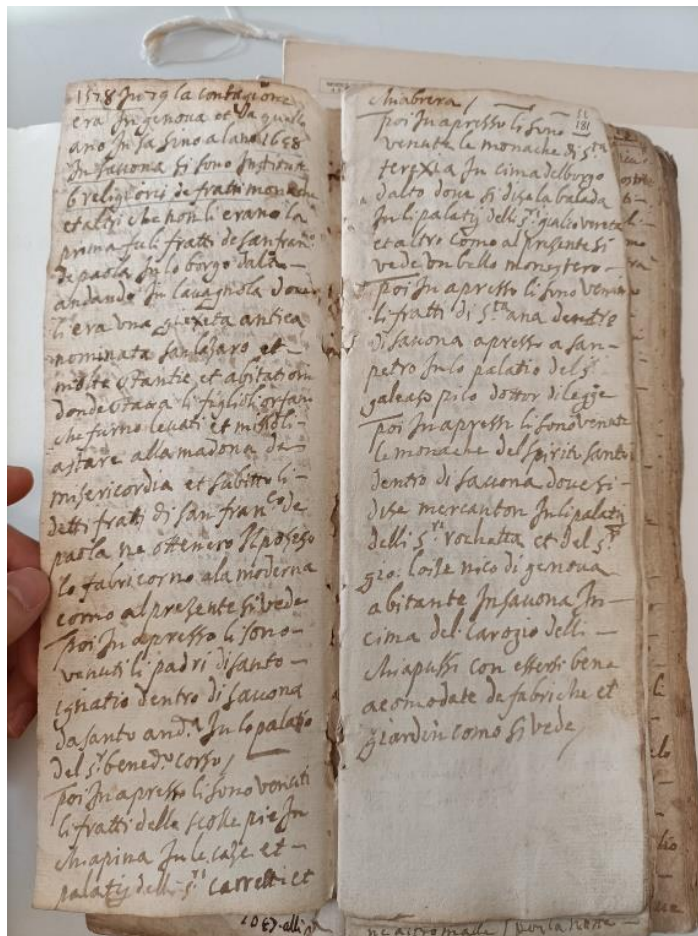 1578 In 79 la contagione
era In genova et da quello
ano In sa sino a lano 1658
In savona si sono Instituite
6 religiosi de fratti monache
et altri che non li erano la
prima fu li fratti de san fran.co
de paola In lo borgo dalto
andando In lavagnola dove
li era una giexeta antica
nominata san lazaro et
molte stantie et abitationi
donde stava li figlioli orfani
che furno levati et missoli
a stare alla madona de
misericordia et subitto li
detti fratti di san fran.co de
paola ne ottenero Il poseso
lo fabricorno ala moderna
como al presente si vede
poi In apresso li sono
venuti li padri di santo
ignatio dentro di savona
da santo and.a In lo palatio
del s.r bened.o corso /
poi In apresso li sono venuti
li fratti delle scolle pie In
chiapina In le case et
palatij delli s.ri carretti et
chiabrera /
181
poi In apresso li sono
venute le monache di s.ta
terexia In cima del borgo
dalto dove si dise la balada
In li palatij delli s.ri giulio
et altro como al presente si
vede un bello monestero
poi In apresso li sono venuti
li fratti di s.ta ana dentro
di savona apresso a san
petro In lo palatio del s.r
galeaso pico dottor di legge
poi In apresso li sono venute
le monache del spirito santo
dentro di savona dove si
dise mercanton In li palatij
delli s.ri rochetta et del s.r
gio. loise nico di genova
abitante In savona In
cima del carogio delli
chiapussi con essersi bene
acomodate de fabriche et
giardin como si vede /